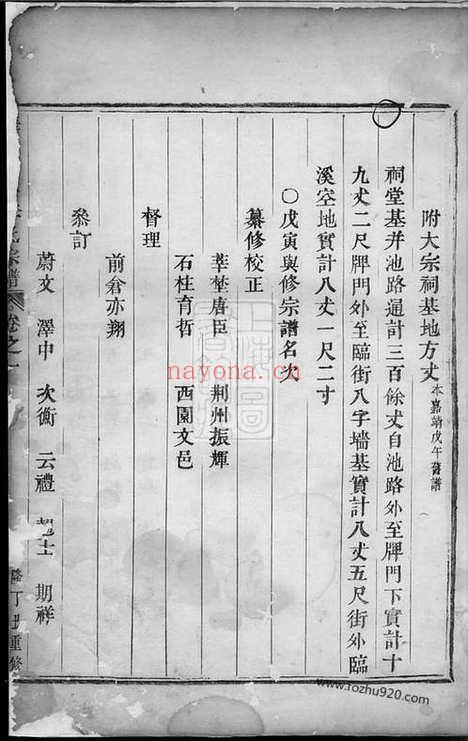 附大宗祠基地方丈 本嘉靖戊午舊譜
祠堂基并池路通計三百餘丈自池路外至牌門下實計十
九丈二尺牌門外至臨街八字墻基實計八丈五尺街外臨
溪空地實計八丈一尺二寸
○戊寅與修宗譜名次
纂修校正
莘塋唐臣 荆州振輝
石柱育哲 西園文邑
督理
前倉亦翔
叅訂
蔚文 澤中 次衡 云禮 期祥
氏宗譜 卷之一 隆丁丑重修
nayona.cn
www.fozhu920.com